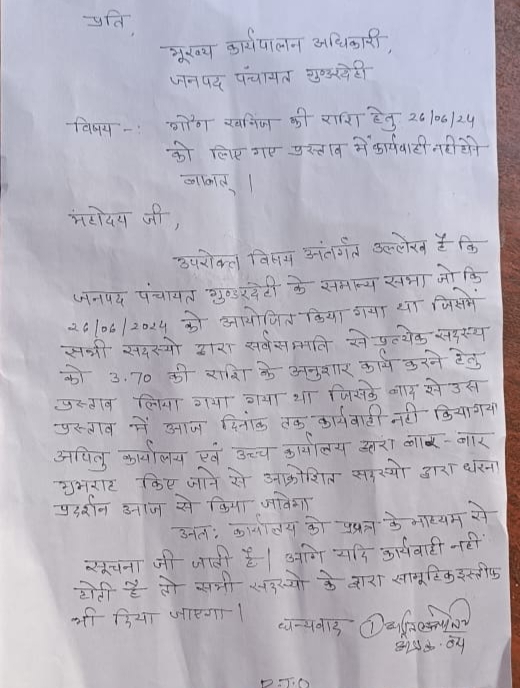 प्रति,
मुख्य कार्यपालन अधिकारी,
जनपद पंचायत गुण्डरदेही
विषय -: गौंण खनिज की राशि हेतु 26/06/24
को लिए गए प्रस्ताव में कार्यवाही नही होने
बाबत् |
महोदय जी,
उपरोक्त विषय अंतर्गत उल्लेख है कि
जनपद पंचायत गुण्डरदेही के समान्य सभा जो कि
26/06/2024 को आयोजित किया गया था जिसमे
सभी सदस्यो द्वारा सर्वसम्मति से प्रत्येक सदस्य
को 3.70 की राशि के अनुशार कार्य करने हेतु
प्रस्ताव लिया गया गया था जिसके बाद से उस
प्रस्ताव में आज दिनांक तक कार्यवाही नही किया गया
अपितु कार्यालय एवं उच्च कार्यालय द्वारा बार-बार
गुमराह किए जाने से आक्रोशित सदस्यो द्वारा धरना
प्रदर्शन आज से किया जावेगा
अतः कार्यालय को प्रपत्र के माध्यम से
सूचना जी जाती है | आगे यदि कार्यवाही नही
होती है तो सभी सदस्यो के द्वारा सामूहिक इस्तीफा
भी दिया जाएगा |
धन्यवाद ①